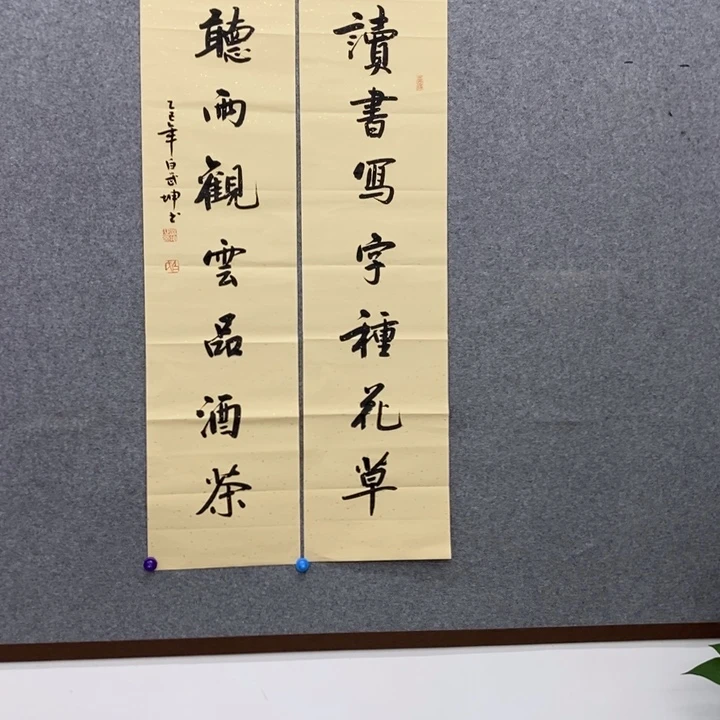 讀書寫字種花草
聽雨觀雲品酒茶
乙巳年白武坤书